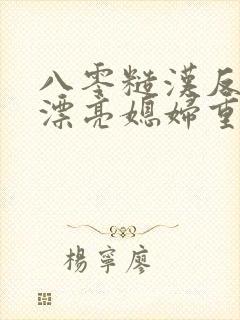 八零糙漢反
漂亮媳婦重
楊寧廖